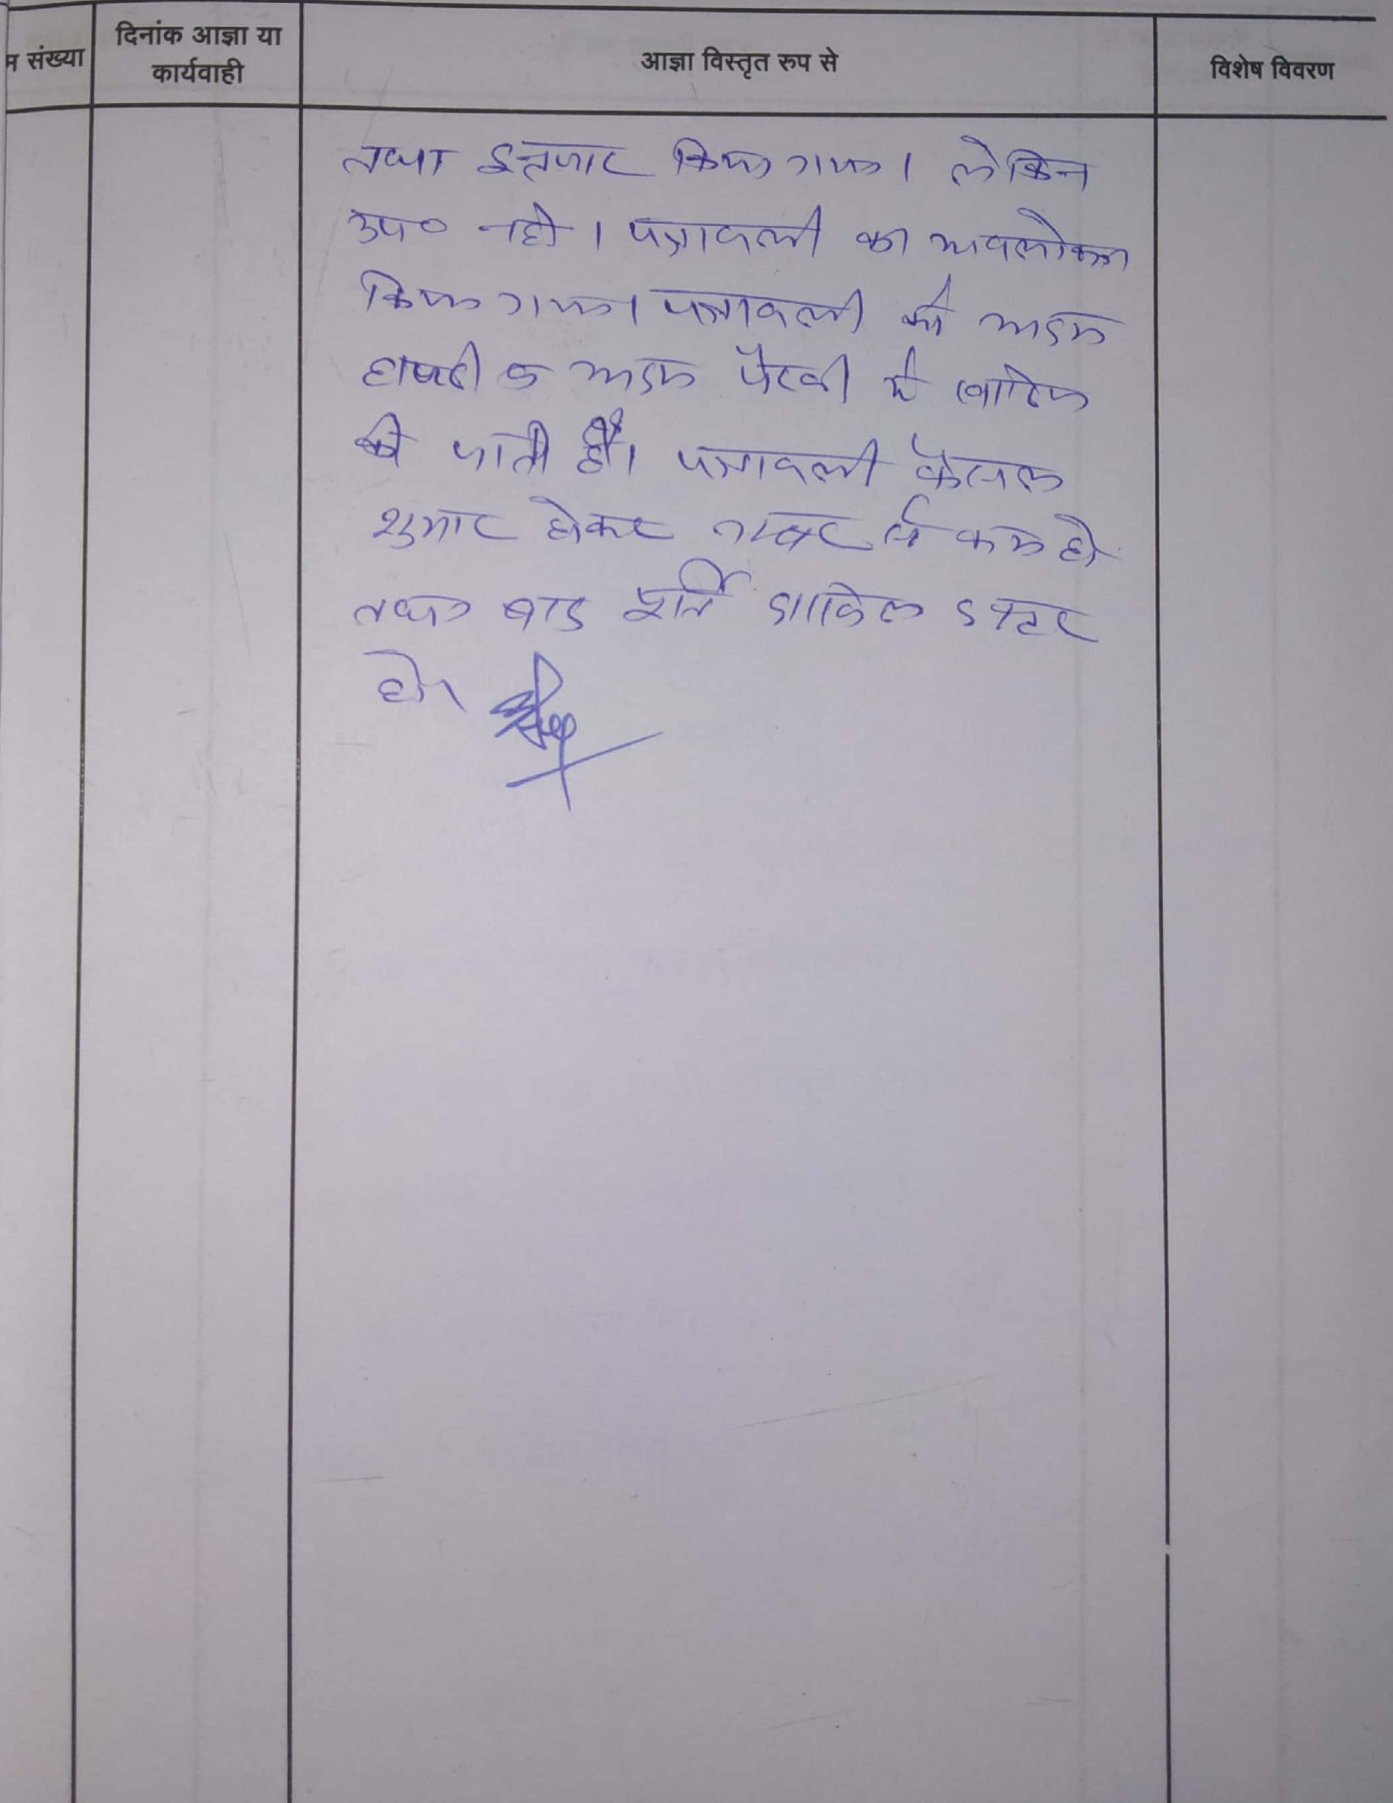 म संख्या
दिनांक आज्ञा या
कार्यवाही
आज्ञा विस्तृत रुप से
विशेष विवरण
तथा इन्तजार किया गया। लेकिन
उप० नही। पत्रावली का अवलोकन
किया गया। पत्रावली को अदम
हाजरी व अदम पैरवी में खारिज
की जाती है। पत्रावली फैसल
शुमार होकर नम्बर से कम हो
तथा बाद पूर्ति दाखिल दफ्तर
हो।